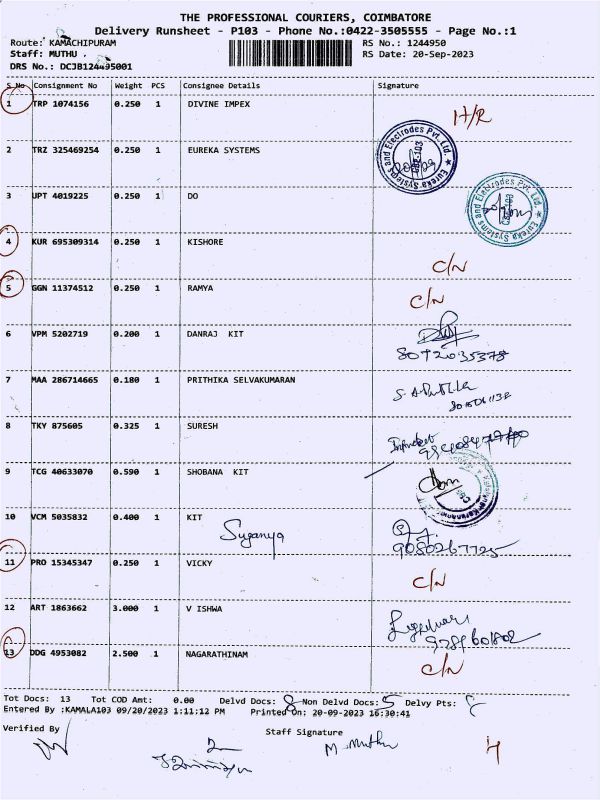 THE PROFESSIONAL COURIERS, COIMBATORE
Delivery Runsheet - P103 - Phone No.:0422-3505555 - Page No.:1
Route: KAMACHIPURAM RS No.: 1244950
Staff: MUTHU . RS Date: 20-Sep-2023
DRS No.: DCJB124495001
S.No Consignment No Weight PCS Consignee Details Signature
1 TRP 1074156 0.250 1 DIVINE IMPEX
2 TRZ 325469254 0.250 1 EUREKA SYSTEMS
Eureka Systems and Electrodes Pvt. Ltd. CBE-103
3 UPT 4019225 0.250 1 DO
Eureka Systems and Electrodes Pvt. Ltd. CBE-103
4 KUR 695309314 0.250 1 KISHORE C/N
5 GGN 11374512 0.250 1 RAMYA C/N
6 VPM 5202719 0.200 1 DANRAJ KIT
7 MAA 286714665 0.180 1 PRITHIKA SELVAKUMARAN
8 TKY 875605 0.325 1 SURESH
9 TCG 40633070 0.590 1 SHOBANA KIT
10 VCM 5035832 0.400 1 KIT Suganya 9080267725
11 PRO 15345347 0.250 1 VICKY C/N
12 ART 1863662 3.000 1 V ISHWA
13 DDG 4953082 2.500 1 NAGARATHINAM C/N
Tot Docs: 13 Tot COD Amt: 0.00 Delvd Docs: 8 Non Delvd Docs: 5 Delvy Pts: 8
Entered By :KAMALA103 09/20/2023 1:11:12 PM Printed On: 20-09-2023 16:30:41
Verified By Staff Signature
M. Muthu